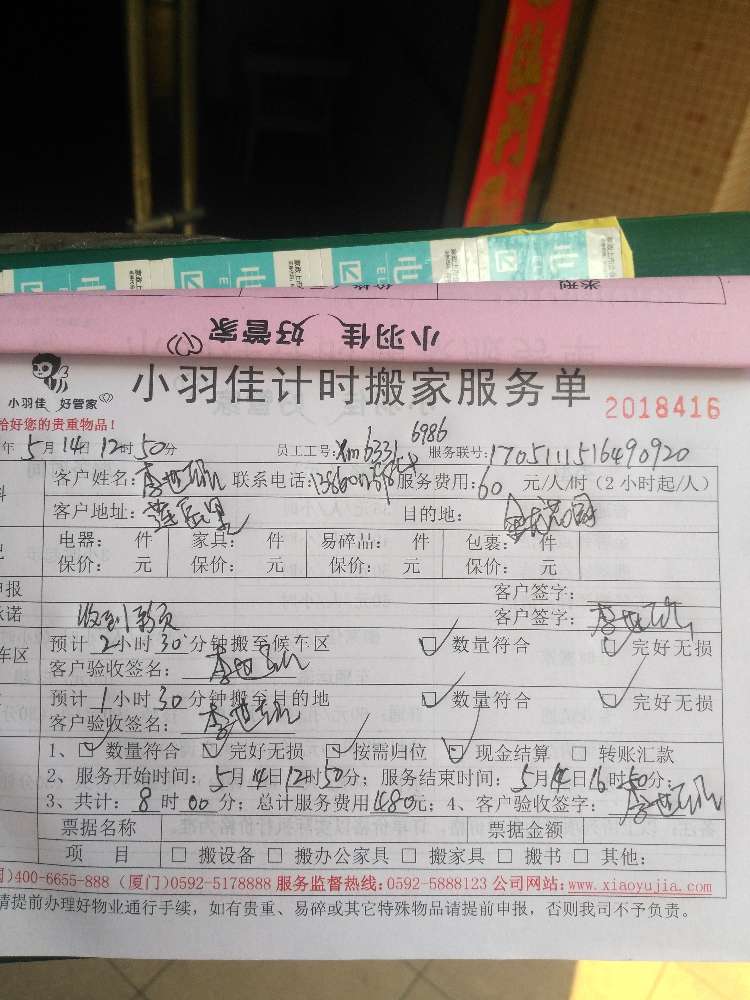 临门
小羽佳 好管家
小羽佳 好管家
小羽佳计时搬家服务单
2018416
恰好您的贵重物品!
年5月14日12时50分 员工工号:Xm6331 6986 服务联号:1705111516490920
客户姓名: 联系电话: 服务费用:60 元/人/时(2小时起/人)
客户地址: 目的地:
电器: 件 家具: 件 易碎品: 件 包裹: 件
保价: 元 保价: 元 保价: 元 保价: 元
申报 客户签字:
承诺 收到 客户签字:
预计2小时30分钟搬至候车区 数量符合 完好无损
车区 客户验收签名:
预计1小时30分钟搬至目的地 数量符合 完好无损
客户验收签名:
1、 数量符合 完好无损 按需归位 现金结算 转账汇款
2、服务开始时间:5月14日12时50分;服务结束时间:5月14日16时50分;
3、共计:8时00分;总计服务费用480元;4、客户验收签字:
票据名称 票据金额
项 目 搬设备 搬办公家具 搬家具 搬书 其他:
)400-6655-888 (厦门)0592-5178888 服务监督热线:0592-5888123 公司网站:www.xiaoyujia.com
请提前办理好物业通行手续,如有贵重、易碎或其它特殊物品请提前申报,否则我司不予负责。